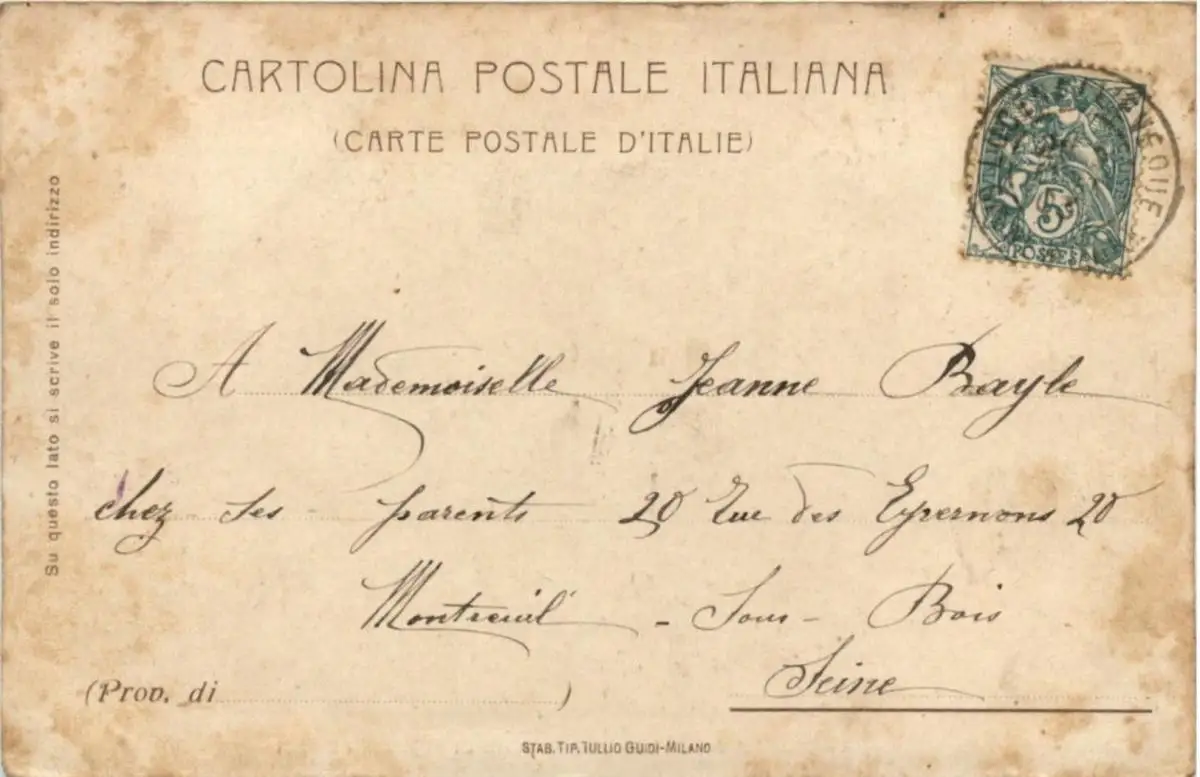 CARTOLINA POSTALE ITALIANA
(CARTE POSTALE D'ITALIE)
Su questo lato si scrive il solo indirizzo
5
POSTES
A Mademoiselle Jeanne Bayle
chez ses parents 20 Rue des Epernons 20
Montreuil - Sous - Bois
Seine
(Prov. di )
STAB. TIP. TULLIO GUIDI-MILANO